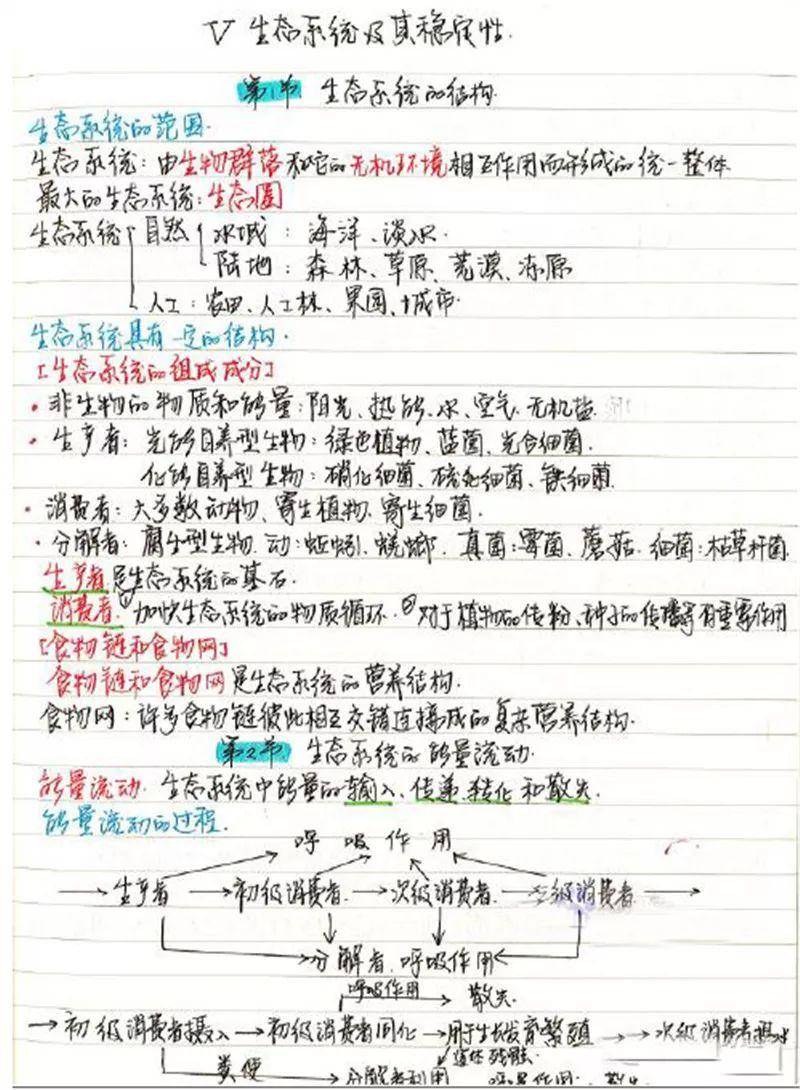 V 生态系统及其稳定性.
第1节 生态系统的结构.
生态系统的范围.
生态系统:由生物群落和它的无机环境相互作用而形成的统一整体.
最大的生态系统:生态圈
生态系统 自然 水域:海洋、淡水.
陆地:森林、草原、荒漠、冻原
人工:农田、人工林、果园、城市.
生态系统具有一定的结构.
[生态系统的组成成分]
·非生物的物质和能量:阳光、热能、水、空气、无机盐.
·生产者:光能自养型生物:绿色植物、蓝菌、光合细菌.
化能自养型生物:硝化细菌、硫化细菌、铁细菌.
·消费者:大多数动物、寄生植物、寄生细菌.
·分解者:腐生型生物.动:蚯蚓、蜣螂.真菌:霉菌、蘑菇.细菌:枯草杆菌.
生产者是生态系统的基石.
消费者.①加快生态系统的物质循环.②对于植物的传粉、种子的传播等有重要作用
[食物链和食物网]
食物链和食物网是生态系统的营养结构.
食物网:许多食物链彼此相互交错连接成的复杂营养结构.
第2节 生态系统的能量流动.
能量流动.生态系统中能量的输入、传递、转化和散失.
能量流动的过程.
呼吸作用
→生产者→初级消费者→次级消费者→级消费者→
分解者.呼吸作用
呼吸作用→散失.
→初级消费者摄入→初级消费者同化→用于生长发育繁殖→次级消费者
粪便 遗体残骸
分解者利用 呼吸作用